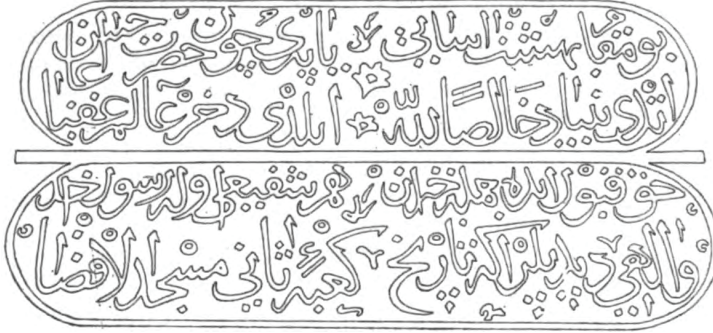 بو مقام بهشت اسایی یاپدی چون حضرت حسن اغا
اتدی بنیاد خالصاً لله ایلدی ذخر عالم عقبا
حق قبول ایده جمله خیراتن هم شفیعی اوله رسول خدا
دیدیلر اکه تاریخ کعبهٔ ثانی مسجد الاقصا